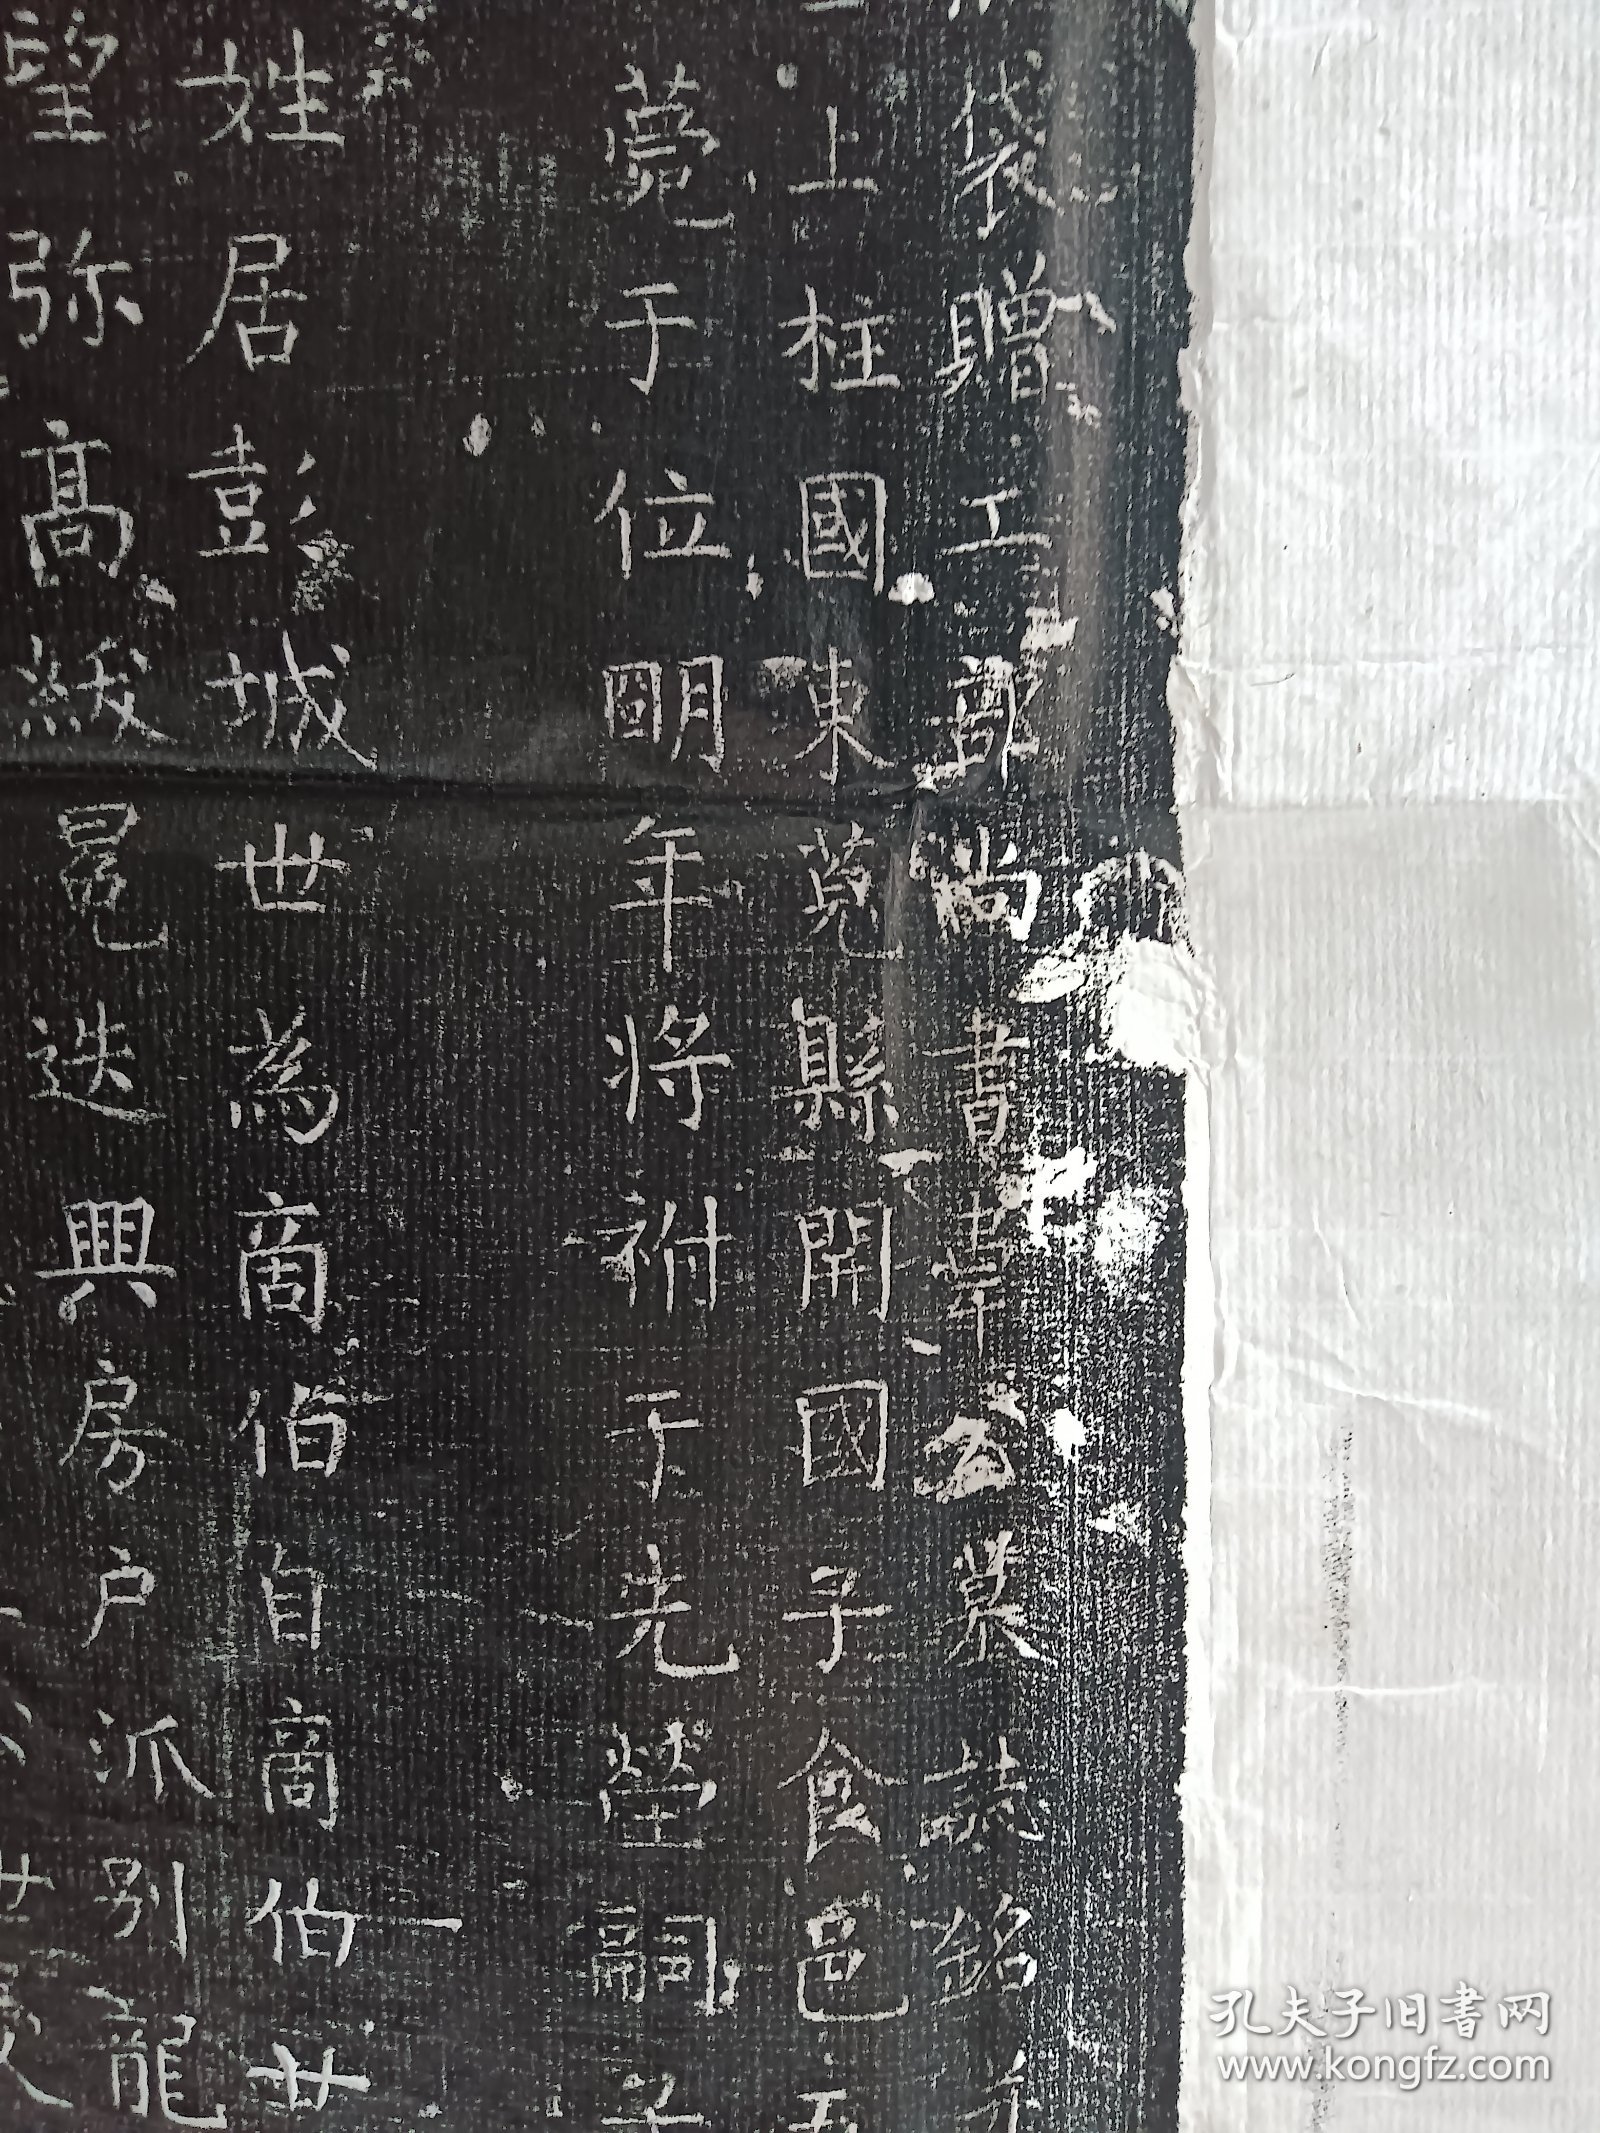 袋贈工部尚書韋公墓誌銘并
上柱國東莞縣開國子食邑五
薨于位明年將祔于先塋嗣子
姓居彭城世為商伯自商伯世
望弥高緩冕迭興房户派别龍
孔夫子旧书网
www.kongfz.com